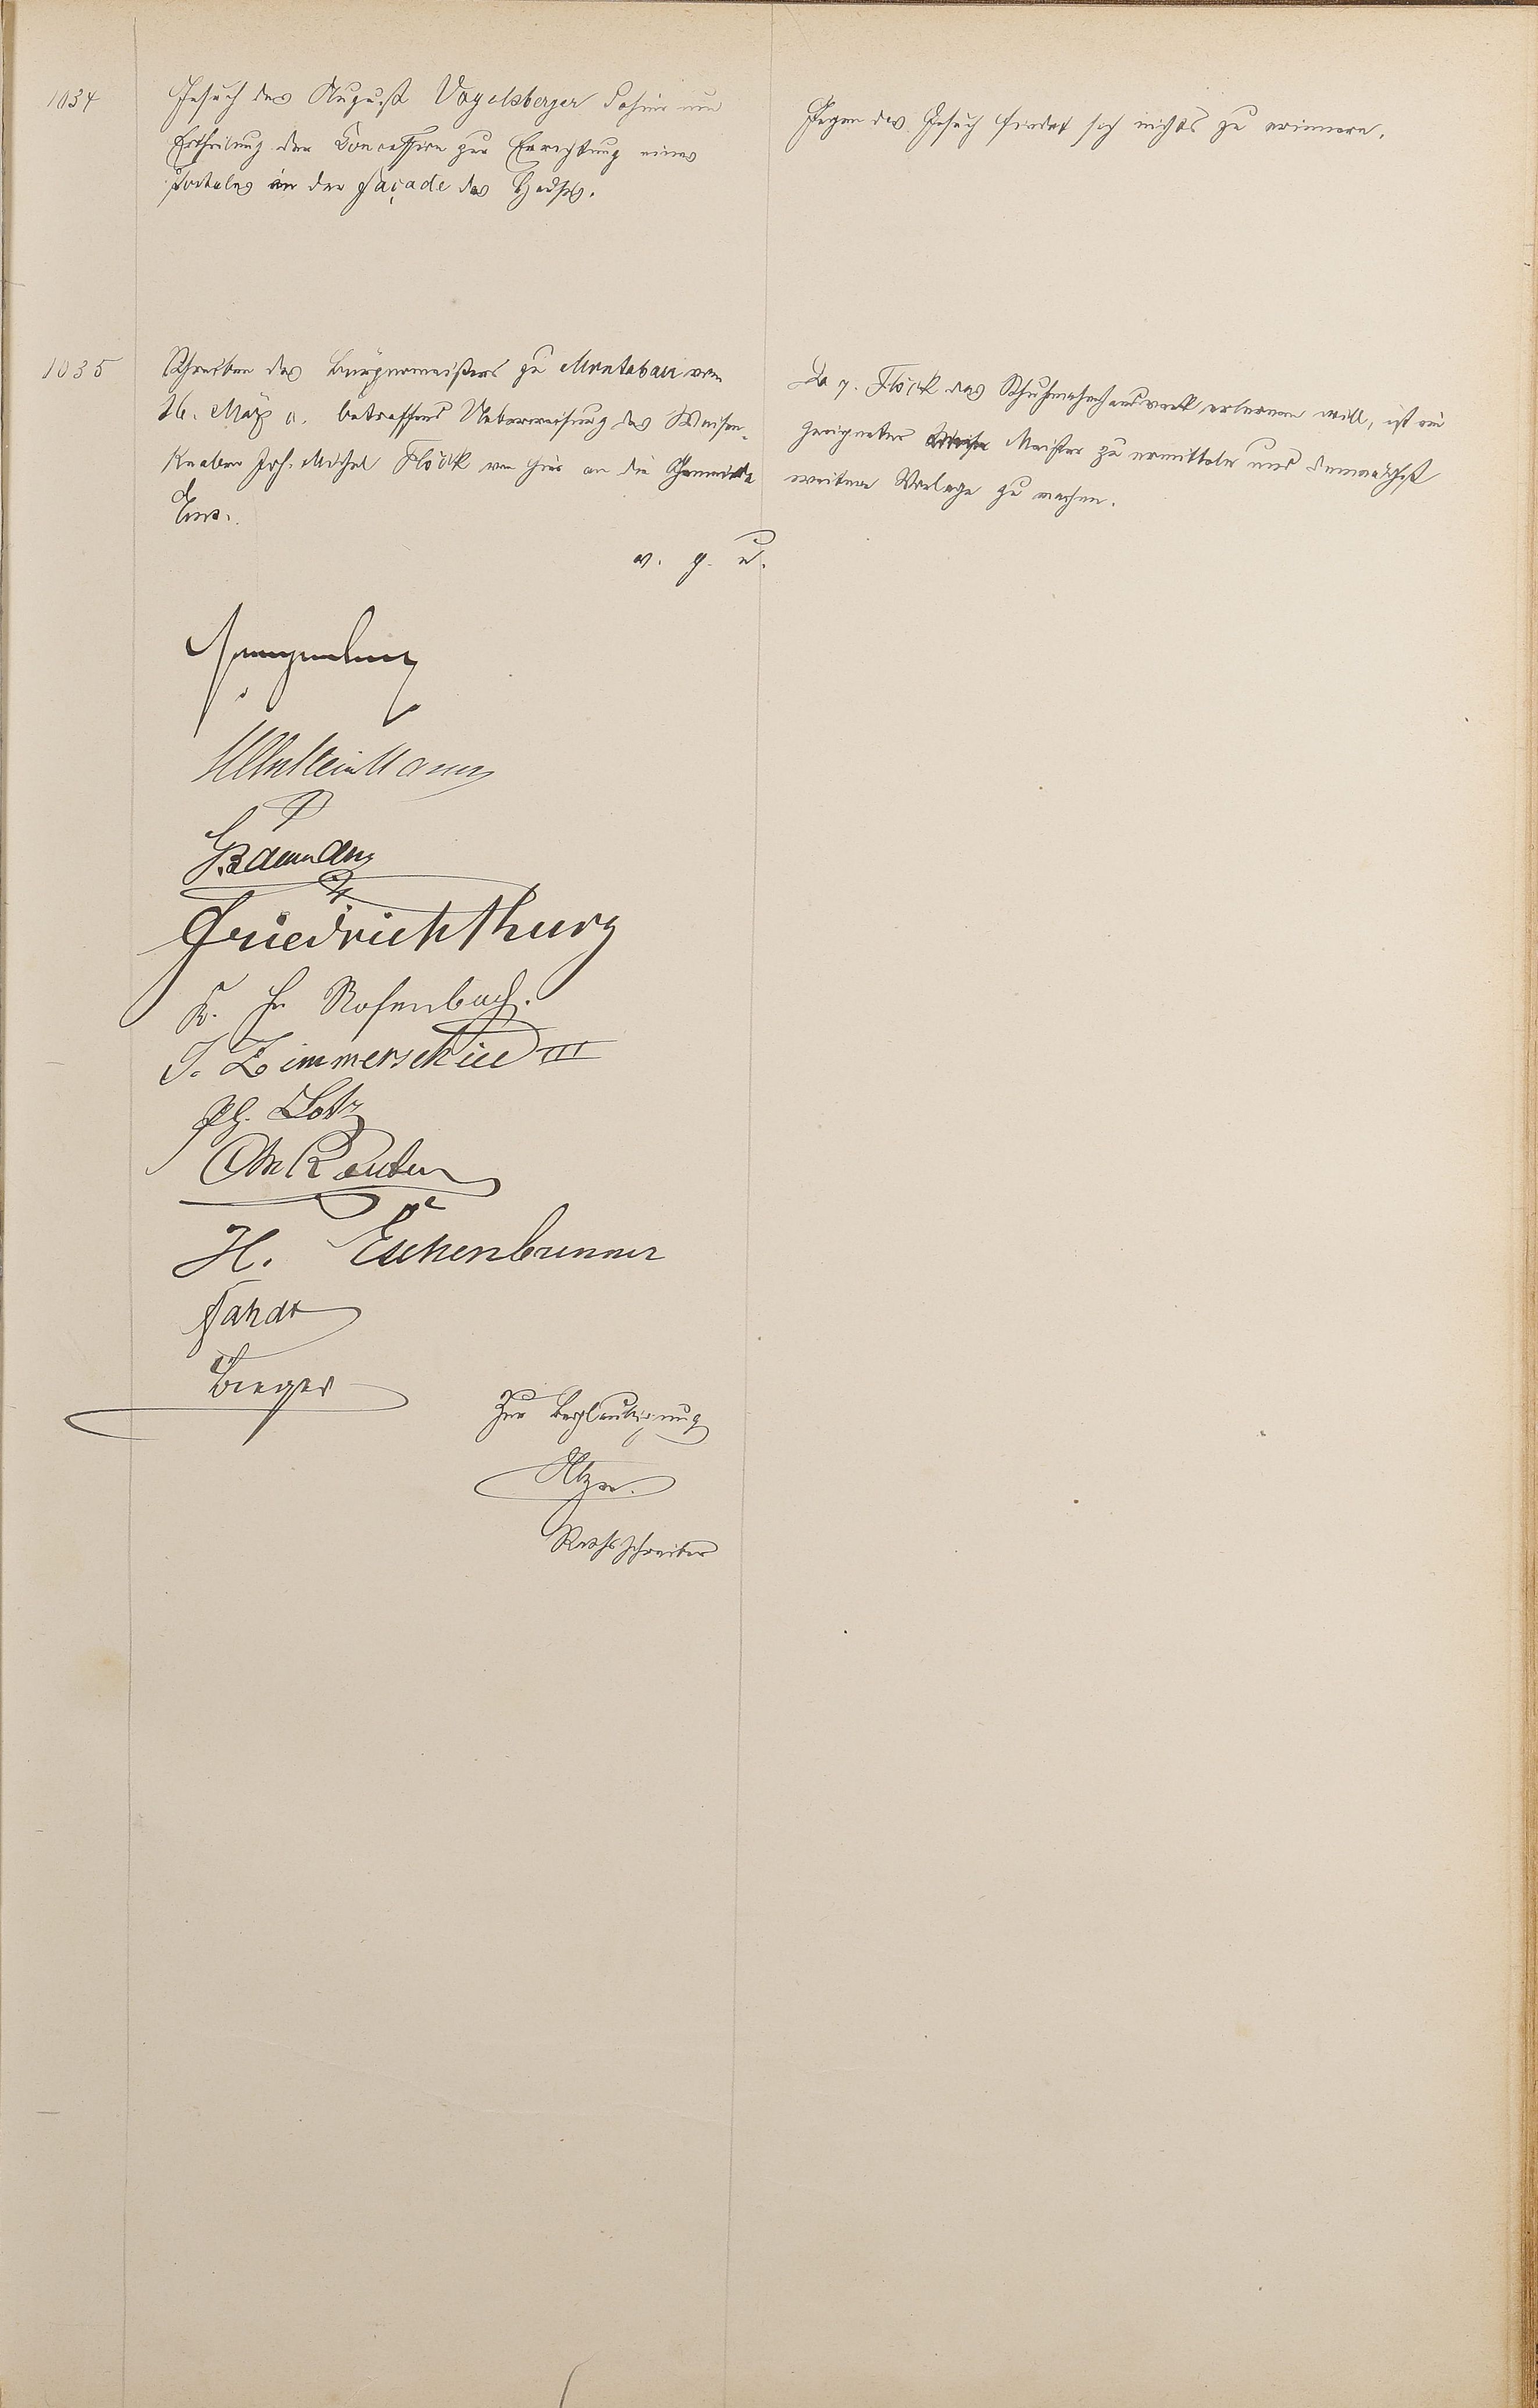 1034
Gesuch des August Vogelsberger dahier um
Ertheilung der Concession zur Errichtung eines
Portales in der Façade des Hauses.
Gegen das Gesuch findet sich nichts zu erinnern.
1035
Schreiben des Bürgermeisters zu Montabaur vom
26. März a. betreffend Ueberweisung des Waisen-
Knaben Joh. Michel Flöck von hier an die Gemeinde
Ems.
Da p. Flöck das Schuhmacherhandwerk erlernen will, ist ein
geeigneter Meister zu ermitteln und demnächst
weitere Vorlage zu machen.
v. g. u.
Spangenberg
Baumann
Friedrich Thurg
K. Hr. Rosenbach.
J. Zimmerschied III
Ph. Lotz
Chr Reuter
H. Eschenbrenner
Fahdt
Berger
Zur Beglaubigung
Rathsschreiber